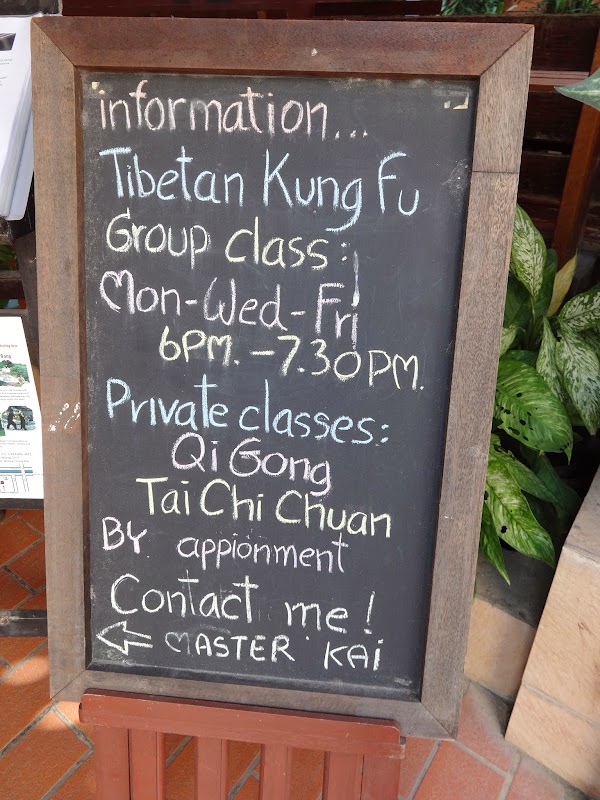 information...
Tibetan Kung Fu
Group class:
Mon-Wed-Fri
6PM. - 7.30PM.
Private classes:
Qi Gong
Tai Chi Chuan
BY appionment
Contact me!
MASTER KAi